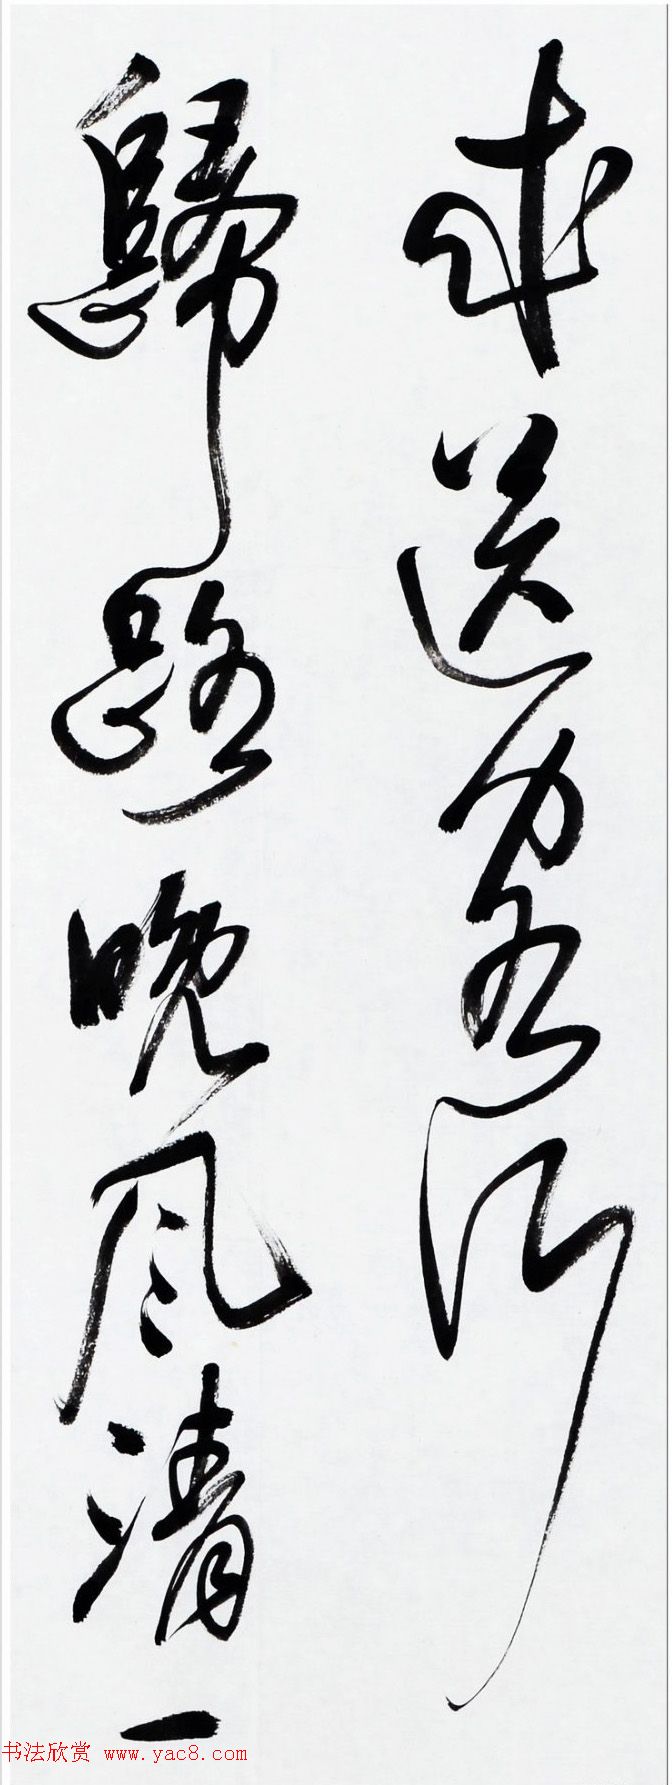 來送客行
歸路晚風清一
书法欣赏 www.yac8.com